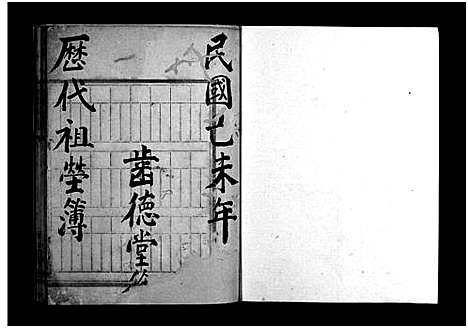 民國乙未年
歷代祖塋簿
啚德堂